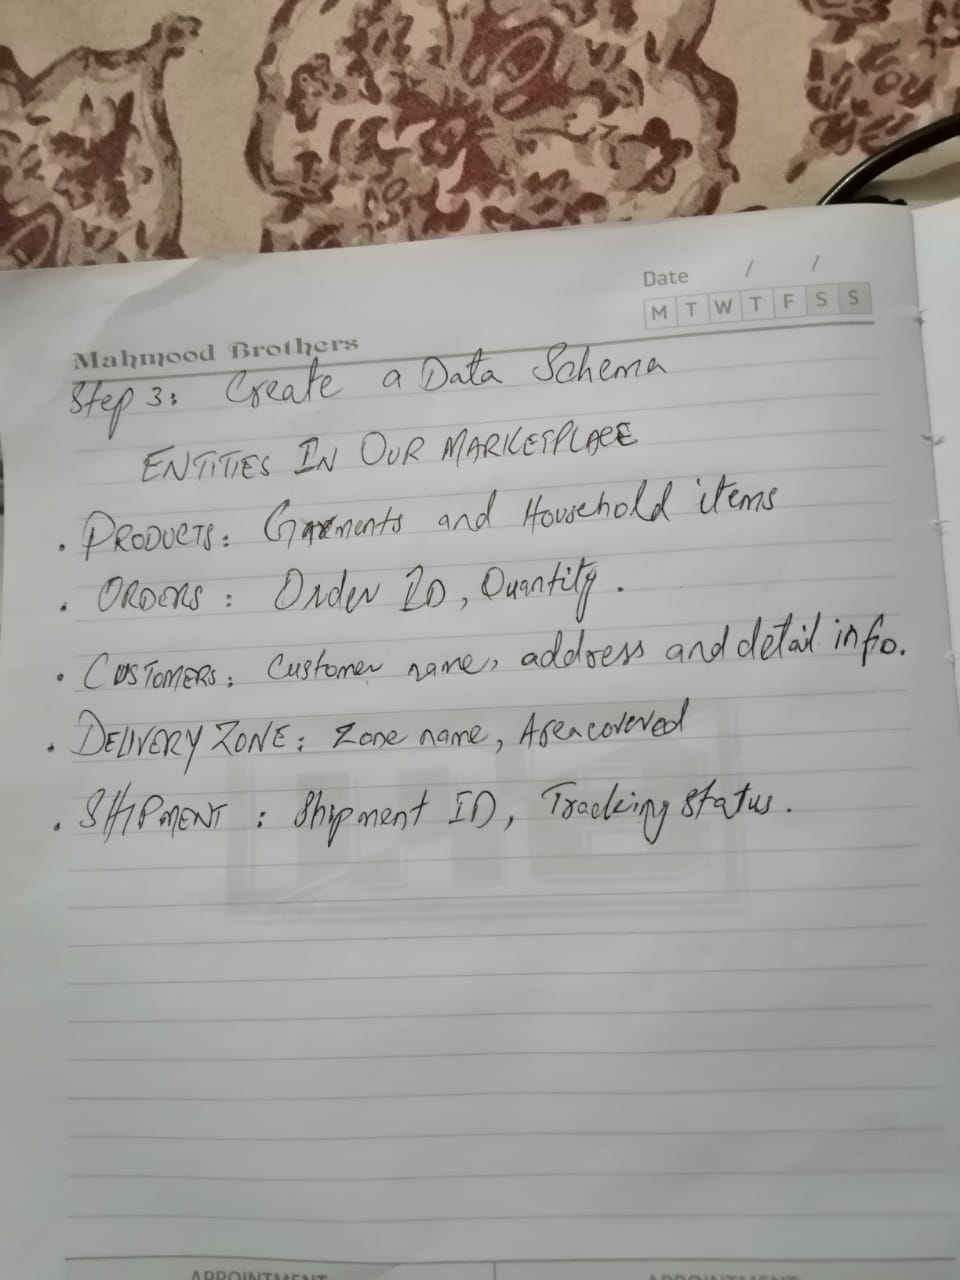 Date / /
M T W T F S S
Mahmood Brothers
Step 3: Create a Data Schema
ENTITIES IN OUR MARKETPLACE
. PRODUCTS: Garments and Household items
. ORDERS: Order ID, Quantity.
. CUSTOMERS: Customer name, address and detail info.
. DELIVERY ZONE: Zone name, Area covered
. SHIPMENT: Shipment ID, Tracking status.
APPOINTMENT APPOINTMENT